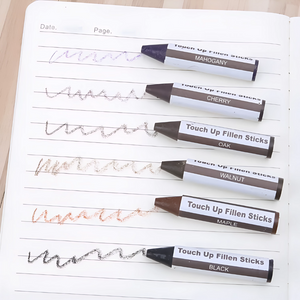 Date. Page.
Touch Up Fillen Sticks
MAHOGANY
Touch Up Fillen Sticks
CHERRY
Touch Up Fillen Sticks
OAK
Touch Up Fillen Sticks
WALNUT
Touch Up Fillen Sticks
MAPLE
Touch Up Fillen Sticks
BLACK